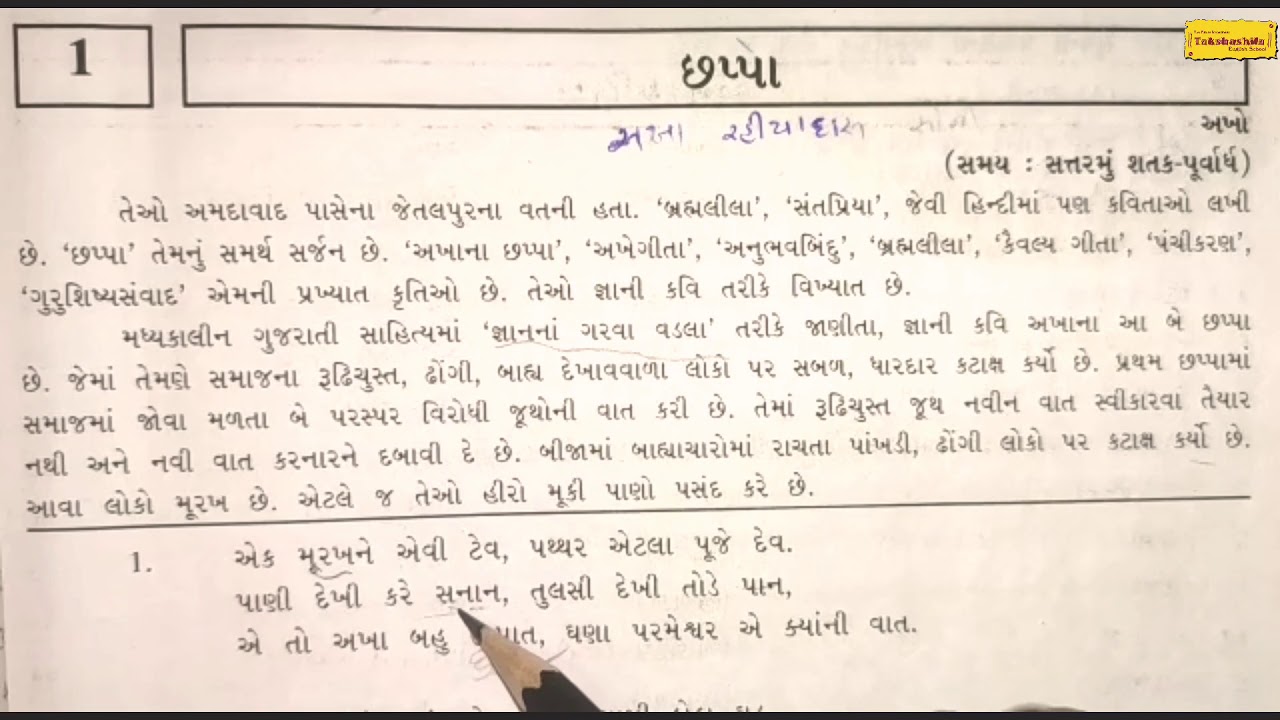 1
છપ્પા
Takshashila
English School
અખા રહીયાદાસ સોની
અખો
(સમય : સત્તરમું શતક-પૂર્વાર્ધ)
તેઓ અમદાવાદ પાસેના જેતલપુરના વતની હતા. ‘બ્રહ્મલીલા’, ‘સંતપ્રિયા’, જેવી હિન્દીમાં પણ કવિતાઓ લખી
છે. ‘છપ્પા’ તેમનું સમર્થ સર્જન છે. ‘અખાના છપ્પા’, ‘અખેગીતા’, ‘અનુભવબિંદુ’, ‘બ્રહ્મલીલા’, ‘કૈવલ્ય ગીતા’, ‘પંચીકરણ’,
‘ગુરુશિષ્યસંવાદ’ એમની પ્રખ્યાત કૃતિઓ છે. તેઓ જ્ઞાની કવિ તરીકે વિખ્યાત છે.
મધ્યકાલીન ગુજરાતી સાહિત્યમાં ‘જ્ઞાનનાં ગરવા વડલા’ તરીકે જાણીતા, જ્ઞાની કવિ અખાના આ બે છપ્પા
છે. જેમાં તેમણે સમાજના રૂઢિચુસ્ત, ઢોંગી, બાહ્ય દેખાવવાળા લોકો પર સબળ, ધારદાર કટાક્ષ કર્યો છે. પ્રથમ છપ્પામાં
સમાજમાં જોવા મળતા બે પરસ્પર વિરોધી જૂથોની વાત કરી છે. તેમાં રૂઢિચુસ્ત જૂથ નવીન વાત સ્વીકારવા તૈયાર
નથી અને નવી વાત કરનારને દબાવી દે છે. બીજામાં બાહ્યાચારોમાં રાચતા પાંખડી, ઢોંગી લોકો પર કટાક્ષ કર્યો છે.
આવા લોકો મૂરખ છે. એટલે જ તેઓ હીરો મૂકી પાણો પસંદ કરે છે.
1. એક મૂરખને એવી ટેવ, પથ્થર એટલા પૂજે દેવ.
પાણી દેખી કરે સનાન, તુલસી દેખી તોડે પાન,
એ તો અખા બહુ ઘણા પરમેશ્વર એ ક્યાંની વાત.